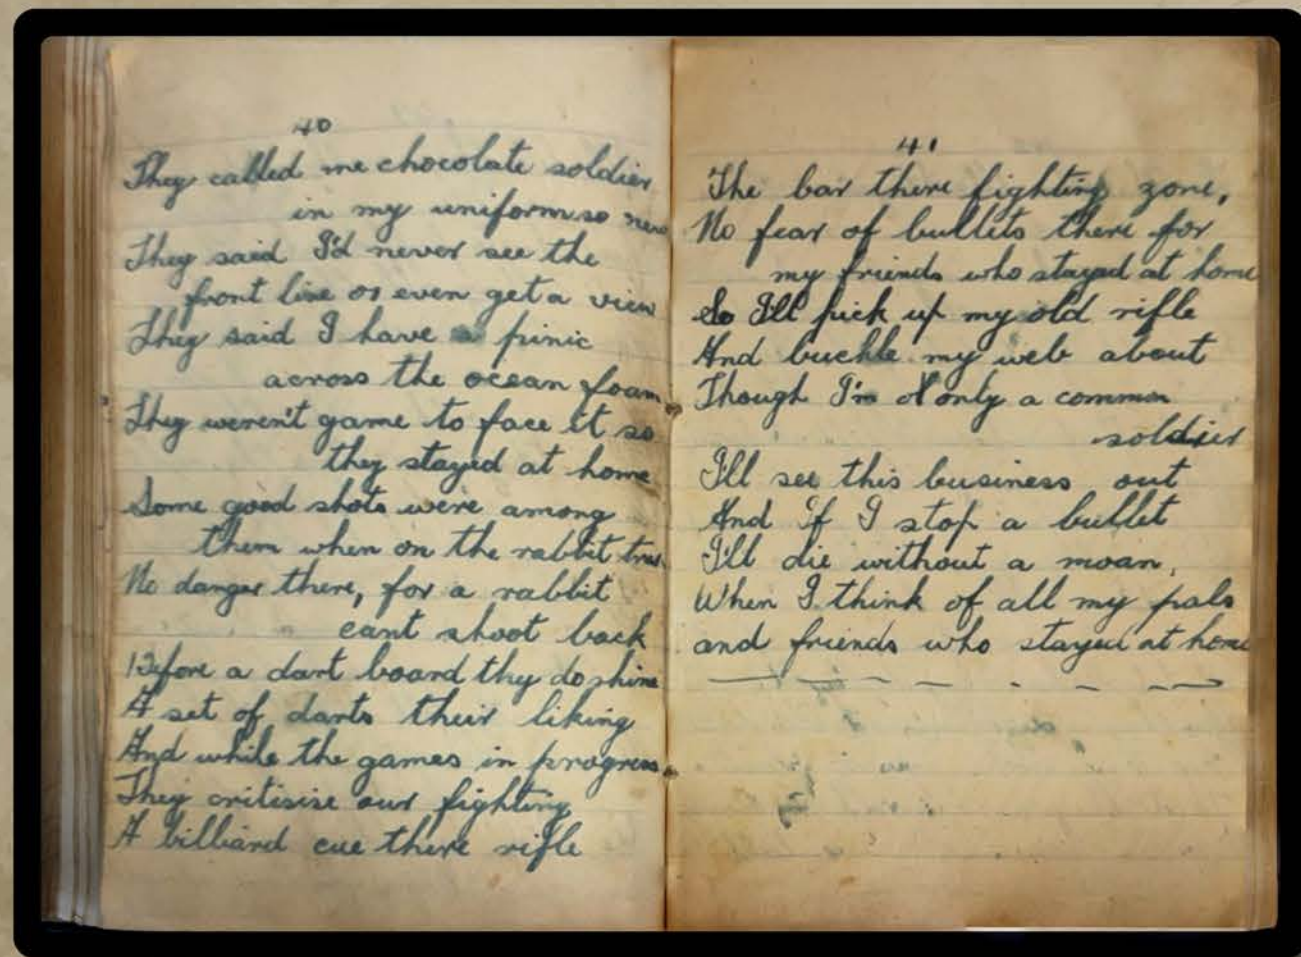 40
They called me chocolate soldier
in my uniform so new
They said I'd never see the
front line or even get a view
They said I have a pinic
across the ocean foam
They weren't game to face it so
they stayed at home
Some good shots were among
them when on the rabbit trac
No danger there, for a rabbit
cant shoot back
Before a dart board thy do shine
A set of darts their liking
And while the games in progress
They critisise our fighting
A billiard cue there rifle
41
The bar there fighting zone,
No fear of bullits there for
my friends who stayed at home
So I'll pick up my old rifle
And buckle my web about
Though I'm only a common
soldier
I'll see this business out
And if I stop a bullet
I'll die without a moan,
When I think of all my pals
and friends who stayed at home